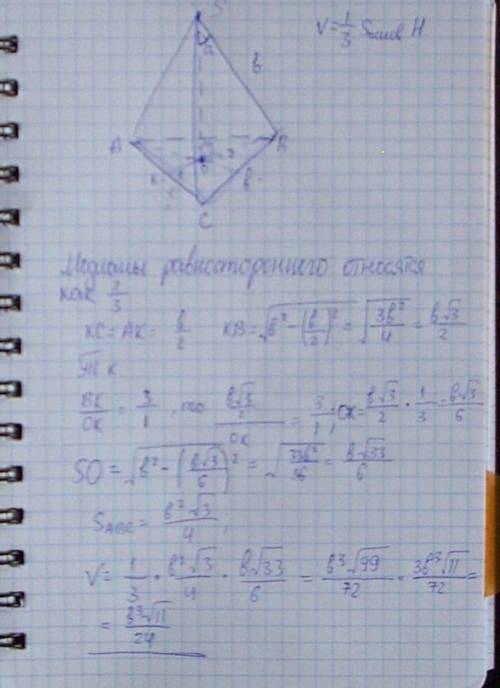 S
V = 1/3 Sоснов H
в
A
B
K
O
в
C
Медианы равностороннего относятся
как 2/3
KC = AK = в/2 KB = √(в² - (в/2)²) = √(3в²/4) = в√3/2
т.к
BK/OK = 3/1, то (в√3/2)/OK = 3/1; OK = в√3/2 · 1/3 = в√3/6
SO = √(в² - (в√3/6)²) = √(33в²/36) = в√33/6
SABC = в²√3/4;
V = 1/3 · в²√3/4 · в√33/6 = в³√99/72 = 3в³√11/72 =
= в³√11/24